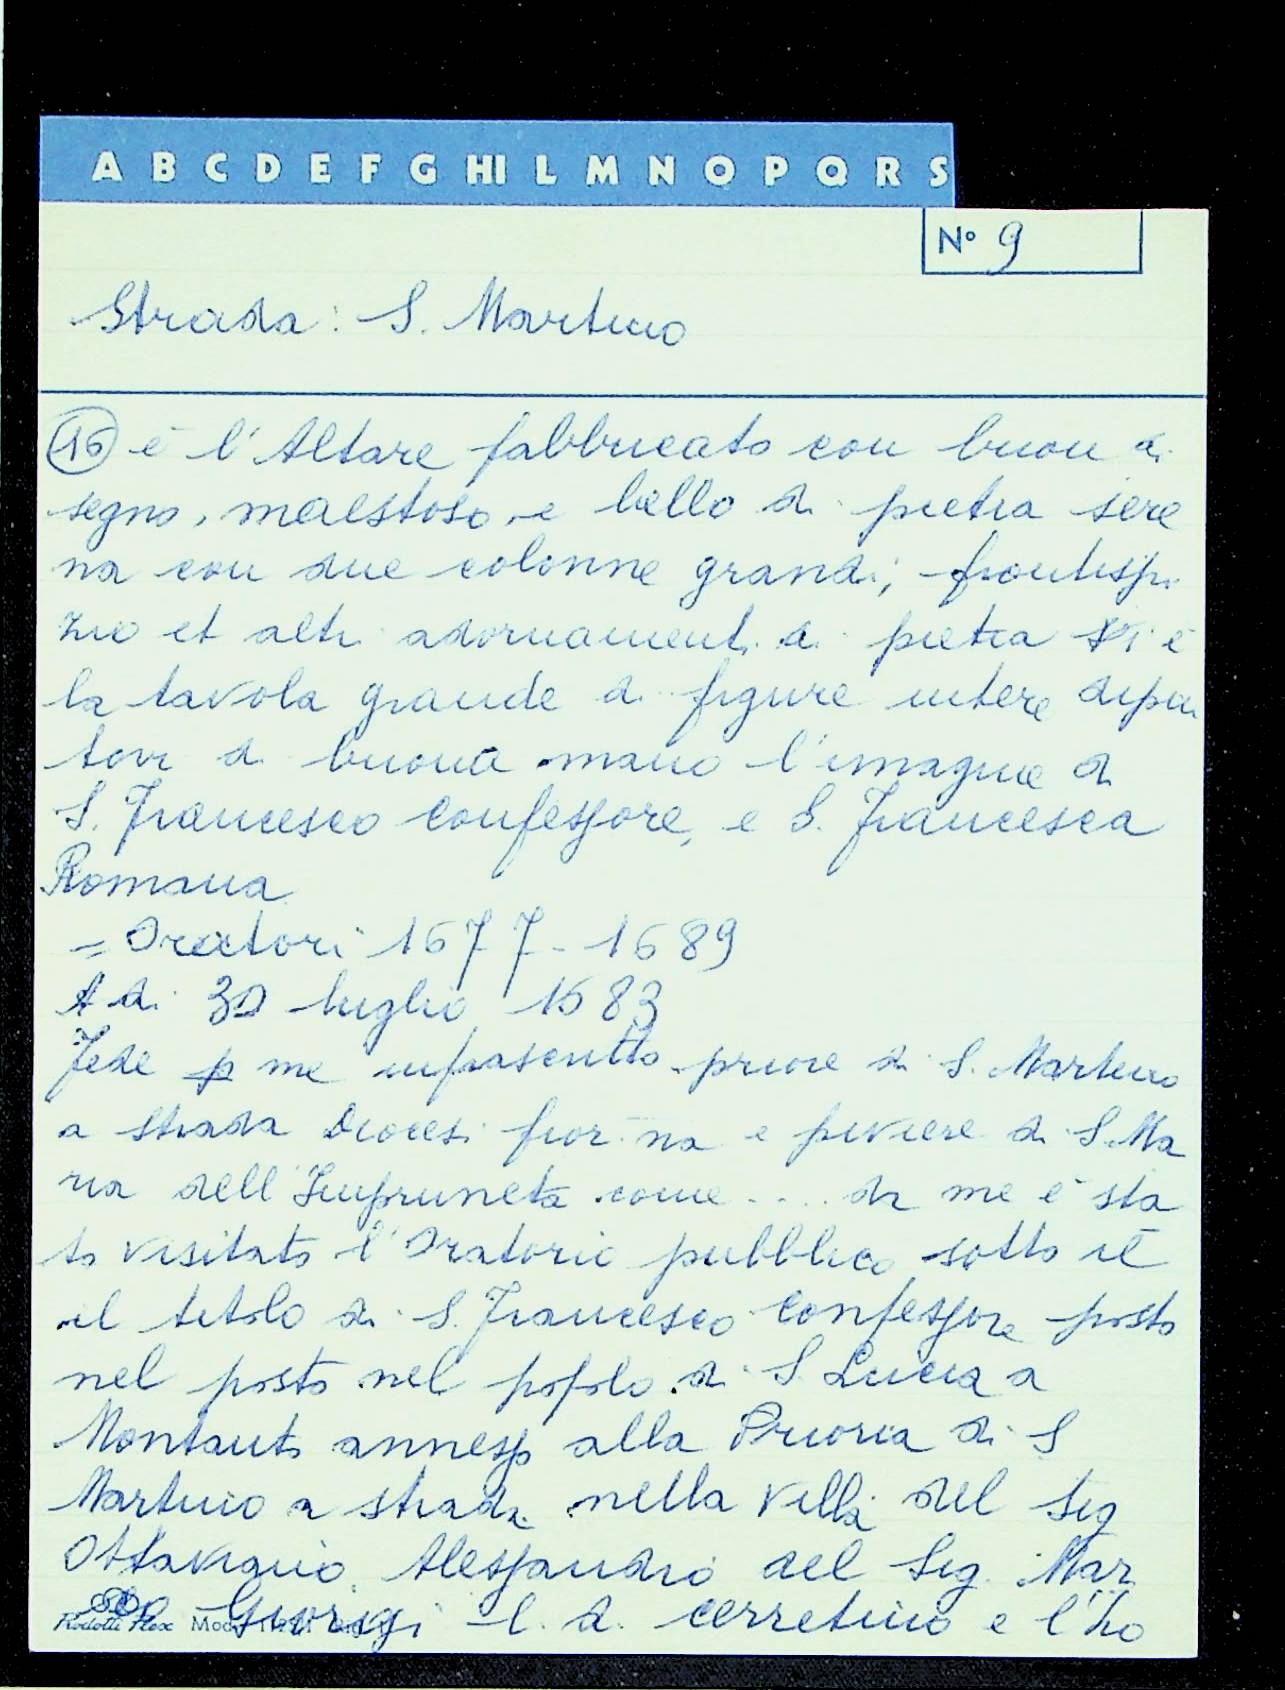 A B C D E F G HI L M N O P Q R S
N° 9
Strada: S. Martino
16 è l'Altare fabbricato con buon di
segno, maestoso, e bello di pietra sere
na con due colonne grandi, frontispi
zio et altri adornamenti di pietra Vi è
la tavola grande di figure intere dipin
tovi di buona mano l'imagine di
S. Francesco confessore, e S. Francesca
Romana
= Oratori 1677 - 1689
A di 30 luglio 1683
Fede p me infrascritto priore di S. Martino
a strada Diocesi fior.na e piviere di S. Ma
ria dell'Impruneta come .... da me è sta
to visitato l'Oratorio pubblico sotto il
il titolo di S. Francesco confessore posto
nel posto nel popolo di S. Lucia a
Montauto annesso alla Prioria di S
Martino a strada nella villa del Sig
Ottaviano Alessandro del Sig. Mar
Giorgi l. d. cerretino e l'ho
Rodolli Flex Mod.